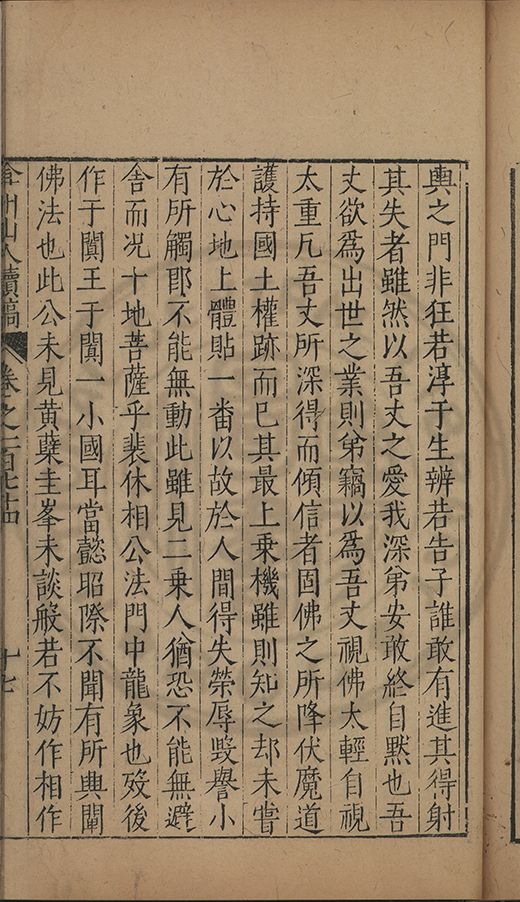 輿之門非狂若淳于生辨若告子誰敢有進其得射
其失者雖然以吾丈之愛我深弟安敢終自默也吾
丈欲為出世之業則弟竊以為吾丈視佛太輕自視
太重凡吾丈所深得而傾信者固佛之所降伏魔道
護持國土權跡而已其最上乘機雖則知之却未嘗
於心地上體貼一番以故於人間得失榮辱毀譽小
有所觸卽不能無動此雖見二乗人猶恐不能無避
舎而况十地菩薩乎裴休相公法門中龍象也歿後
作于闐王于闐一小國耳當懿昭際不聞有所興闡
佛法也此公未見黄蘗圭峯未談般若不妨作相作
弇州山人續稿 卷之一百七十四 十七